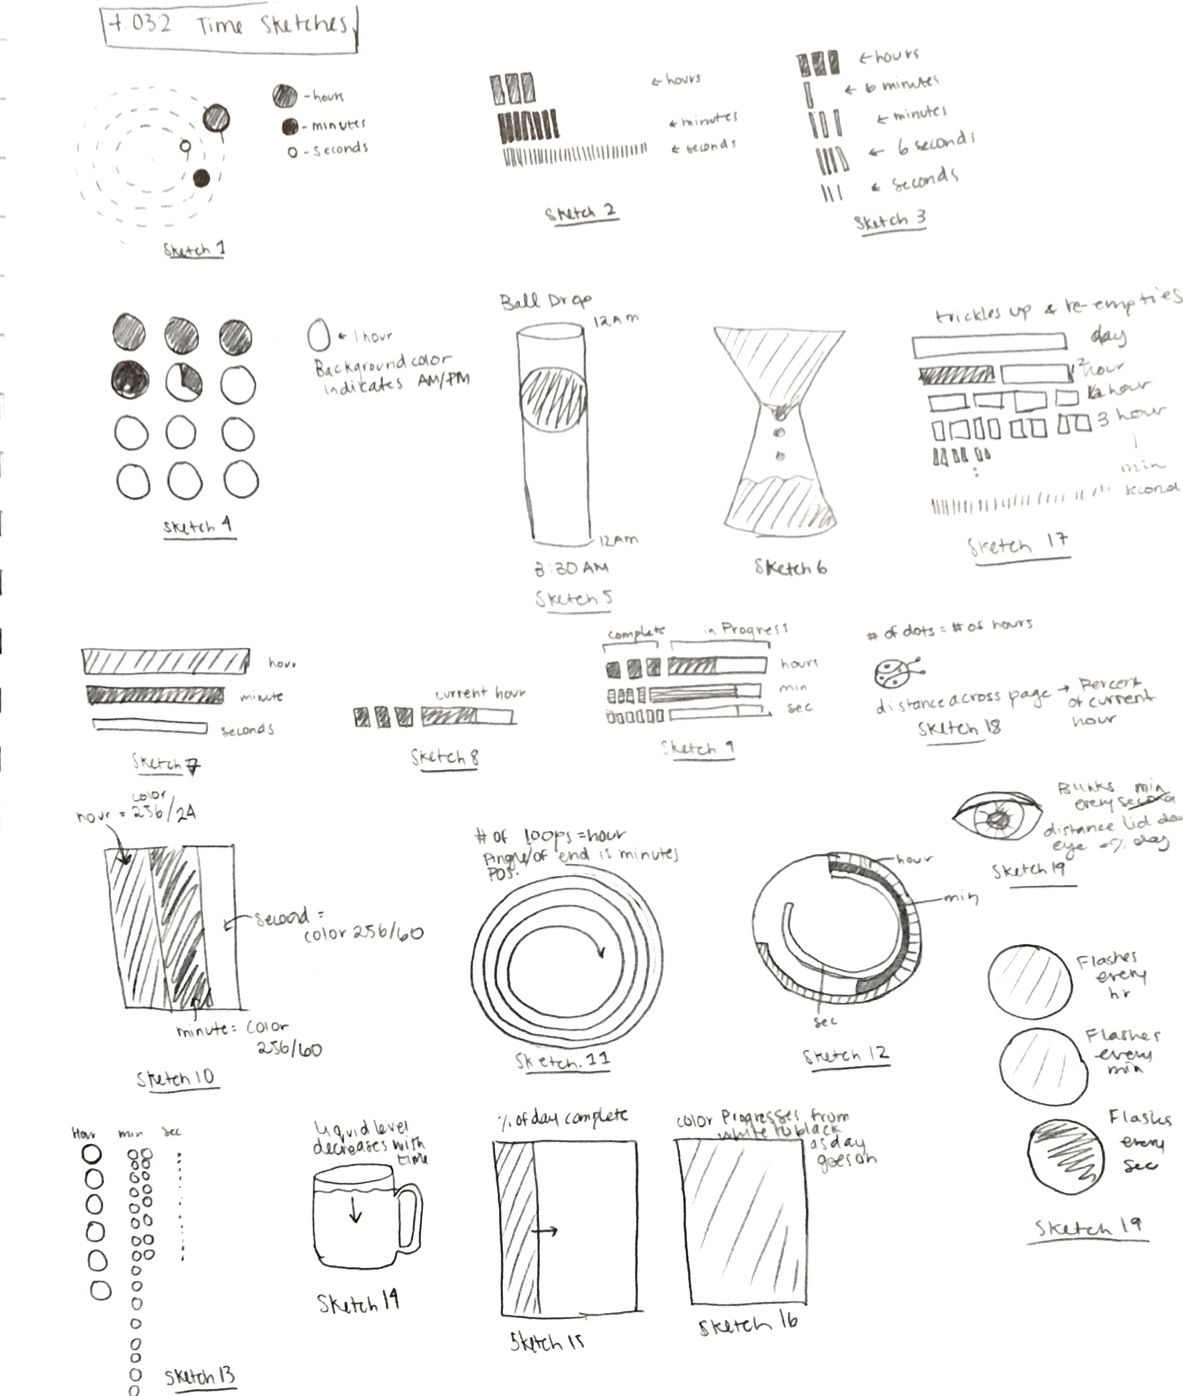 4.032 Time Sketches
- hours
- minutes
- seconds
Sketch 1
← hours
← minutes
← seconds
Sketch 2
← hours
← 6 minutes
← minutes
← 6 seconds
← seconds
Sketch 3
← 1 hour
Background color
indicates AM/PM
Sketch 4
Ball Drop
12AM
12AM
3:30 AM
Sketch 5
Sketch 6
trickles up & re-empties
day
12 hour
hour
3 hour
min
second
Sketch 17
hour
minute
seconds
Sketch 7
current hour
Sketch 8
complete
in Progress
hours
min
sec
Sketch 9
# of dots = # of hours
distance across page → Percent
of current
hour
Sketch 18
color
hour = 256/24
second =
color 256/60
minute = color
256/60
Sketch 10
# of loops = hour
Angle/of end is minutes
pos.
Sketch. 11
hour
min
sec
Sketch 12
Blinks min
every second
distance lid
eye = % day
Sketch 19
Flashes
every
hr
Flashes
every
min
Flashes
every
sec
Sketch 19
Hour
min
sec
Sketch 13
Liquid level
decreases with
time
Sketch 14
% of day complete
Sketch 15
color Progresses from
white to black
as day
goes on
Sketch 16